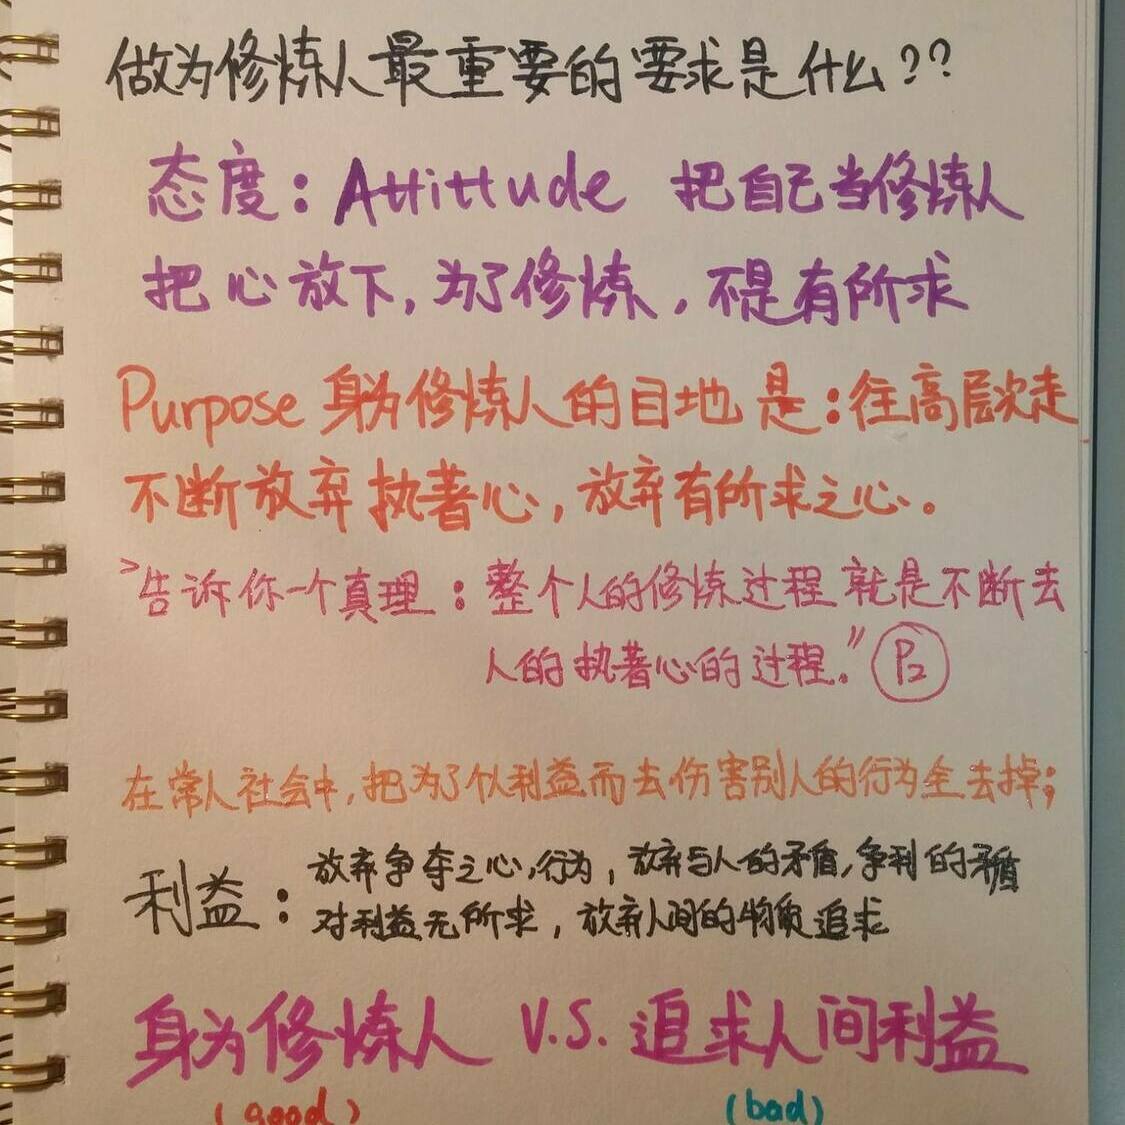 做为修炼人最重要的要求是什么??
态度: Attittude 把自己当修炼人
把心放下, 为了修炼, 不是有所求
Purpose 身为修炼人的目地是: 往高层次走
不断放弃执著心, 放弃有所求之心。
"告诉你一个真理: 整个人的修炼过程就是不断去
人的执著心的过程." P2
在常人社会中, 把为了个人利益而去伤害别人的行为全去掉;
利益: 放弃争夺之心,行为, 放弃与人的矛盾,争利的矛盾
对利益无所求, 放弃人间的物质追求
身为修炼人 V.S. 追求人间利益
(good) (bad)